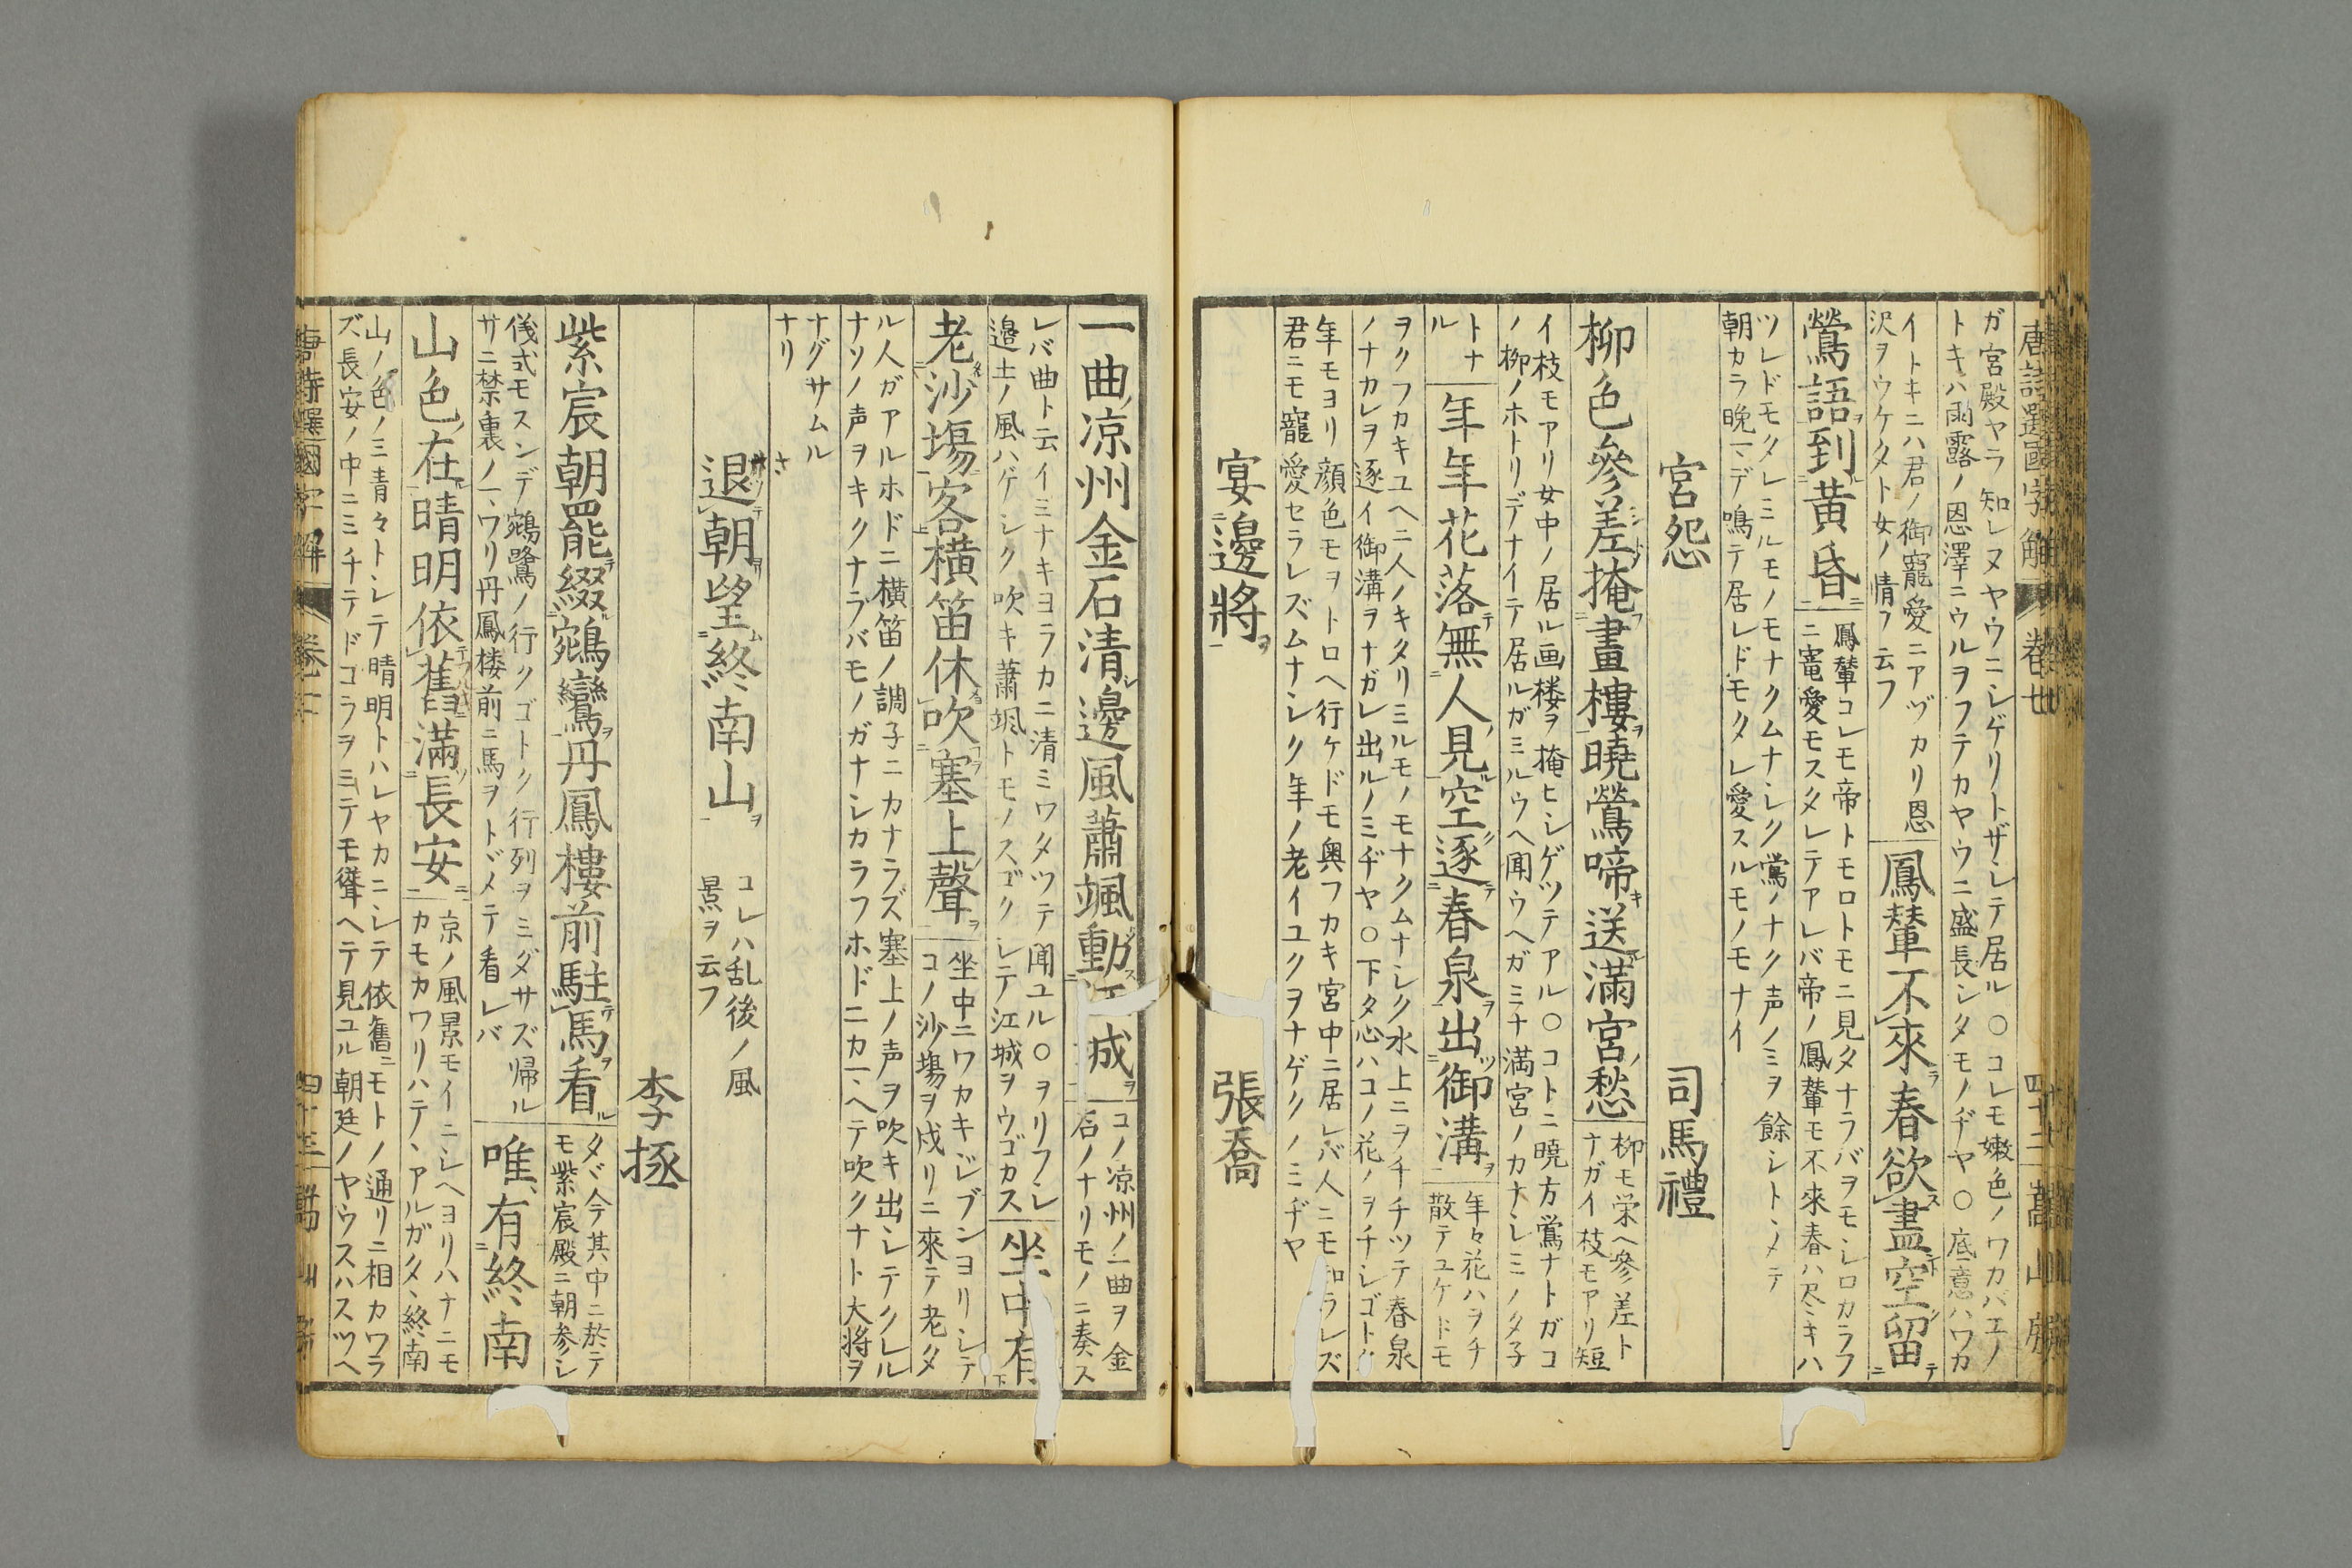 唐詩選國字解 卷七 四十二 嵩山房
ガ宮殿ヤラ知レヌヤウニシゲリトザシテ居ル〇コレモ嫩色ノワカバエノ
トキハ雨露ノ恩澤ニウルヲフテカヤウニ盛長シタモノヂヤ〇底意ハワカ
イトキニハ君ノ御寵愛ニアヅカリ恩
沢ヲウケタト女ノ情フ云フ
鳳輦不來春欲盡空留
鶯語到黃昏
鳳輦コレモ帝トモロトモニ見タナラバヲモシロカラフ
ニ寵愛モスタレテアレバ帝ノ鳳輦モ不來春ハ尽ミキハ
ツレドモタレミルモノモナクムナシク鶯ノナク声ノミヲ餘シトヽメテ
朝カラ晩マデ鳴テ居レドモタレ愛スルモノモナイ
宮怨 司馬禮
柳色參差掩畫樓曉鶯啼送滿宮愁
柳モ栄ヘ參差ト
ナガイ枝モアリ短
イ枝モアリ女中ノ居ル画楼ヲ掩ヒシゲツテアル〇コトニ曉方鶯ナトガコ
ノ柳ノホトリデナイテ居ルガミルウヘ聞ウヘガミナ満宮ノカナシミノタ子
トナ
ル
年年花落無人見空逐春泉出御溝
年々花ハヲチ
散テユケドモ
ヲクフカキユヘニ人ノキタリミルモノモナクムナシク水上ニヲチチツテ春泉
ノナカレヲ逐イ御溝ヲナガレ出ルノミヂヤ〇下タ心ハコノ花ノヲチシゴトク
年モヨリ顔色モヲトロヘ行ケドモ奥フカキ宮中ニ居レバ人ニモ知ラレズ
君ニモ寵愛セラレズムナシク年ノ老イユクヲナゲクノミヂヤ
宴邊將 張喬
一曲凉州金石清邊風蕭颯動江城
コノ凉州ノ一曲ヲ金
石ノナリモノニ奏ス
レバ曲ト云イミナキヨラカニ清ミワタツテ聞ユル〇ヲリフシ
邉土ノ風ハゲシク吹キ蕭颯トモノスゴクシテ江城ヲウゴカス
坐中有
老沙塲客橫笛休吹塞上聲
坐中ニワカキジブンヨリシテ
コノ沙塲ヲ戍リニ來テ老タ
ル人ガアルホドニ横笛ノ調子ニカナラズ塞上ノ声ヲ吹キ出シテクレル
ナソノ声ヲキクナラバモノガナシカラフホドニカマヘテ吹クナト大将ヲ
ナグサムル
ナリ
退朝望終南山
コレハ乱後ノ風
景ヲ云フ
李拯
紫宸朝罷綴鵷鸞丹鳳樓前駐馬看
タヾ今其中ニ於テ
モ紫宸殿ニ朝参シ
儀式モスンデ鵷鷺ノ行クゴトク行列ヲミダサズ帰ル
サニ禁裏ノマワリ丹鳳楼前ニ馬ヲトヾメテ看レバ
唯有終南
山色在晴明依舊滿長安
京ノ風景モイニシヘヨリハナニモ
カモカワリハテヽアルガタヽ終南
山ノ色ノミ青々トシテ晴明トハレヤカニシテ依舊ニモトノ通リニ相カワラ
ズ長安ノ中ニミチテドコラヲミテモ聳ヘテ見ユル朝廷ノヤウスハスツヘ
唐詩選國字解 卷七 四十三 嵩山房